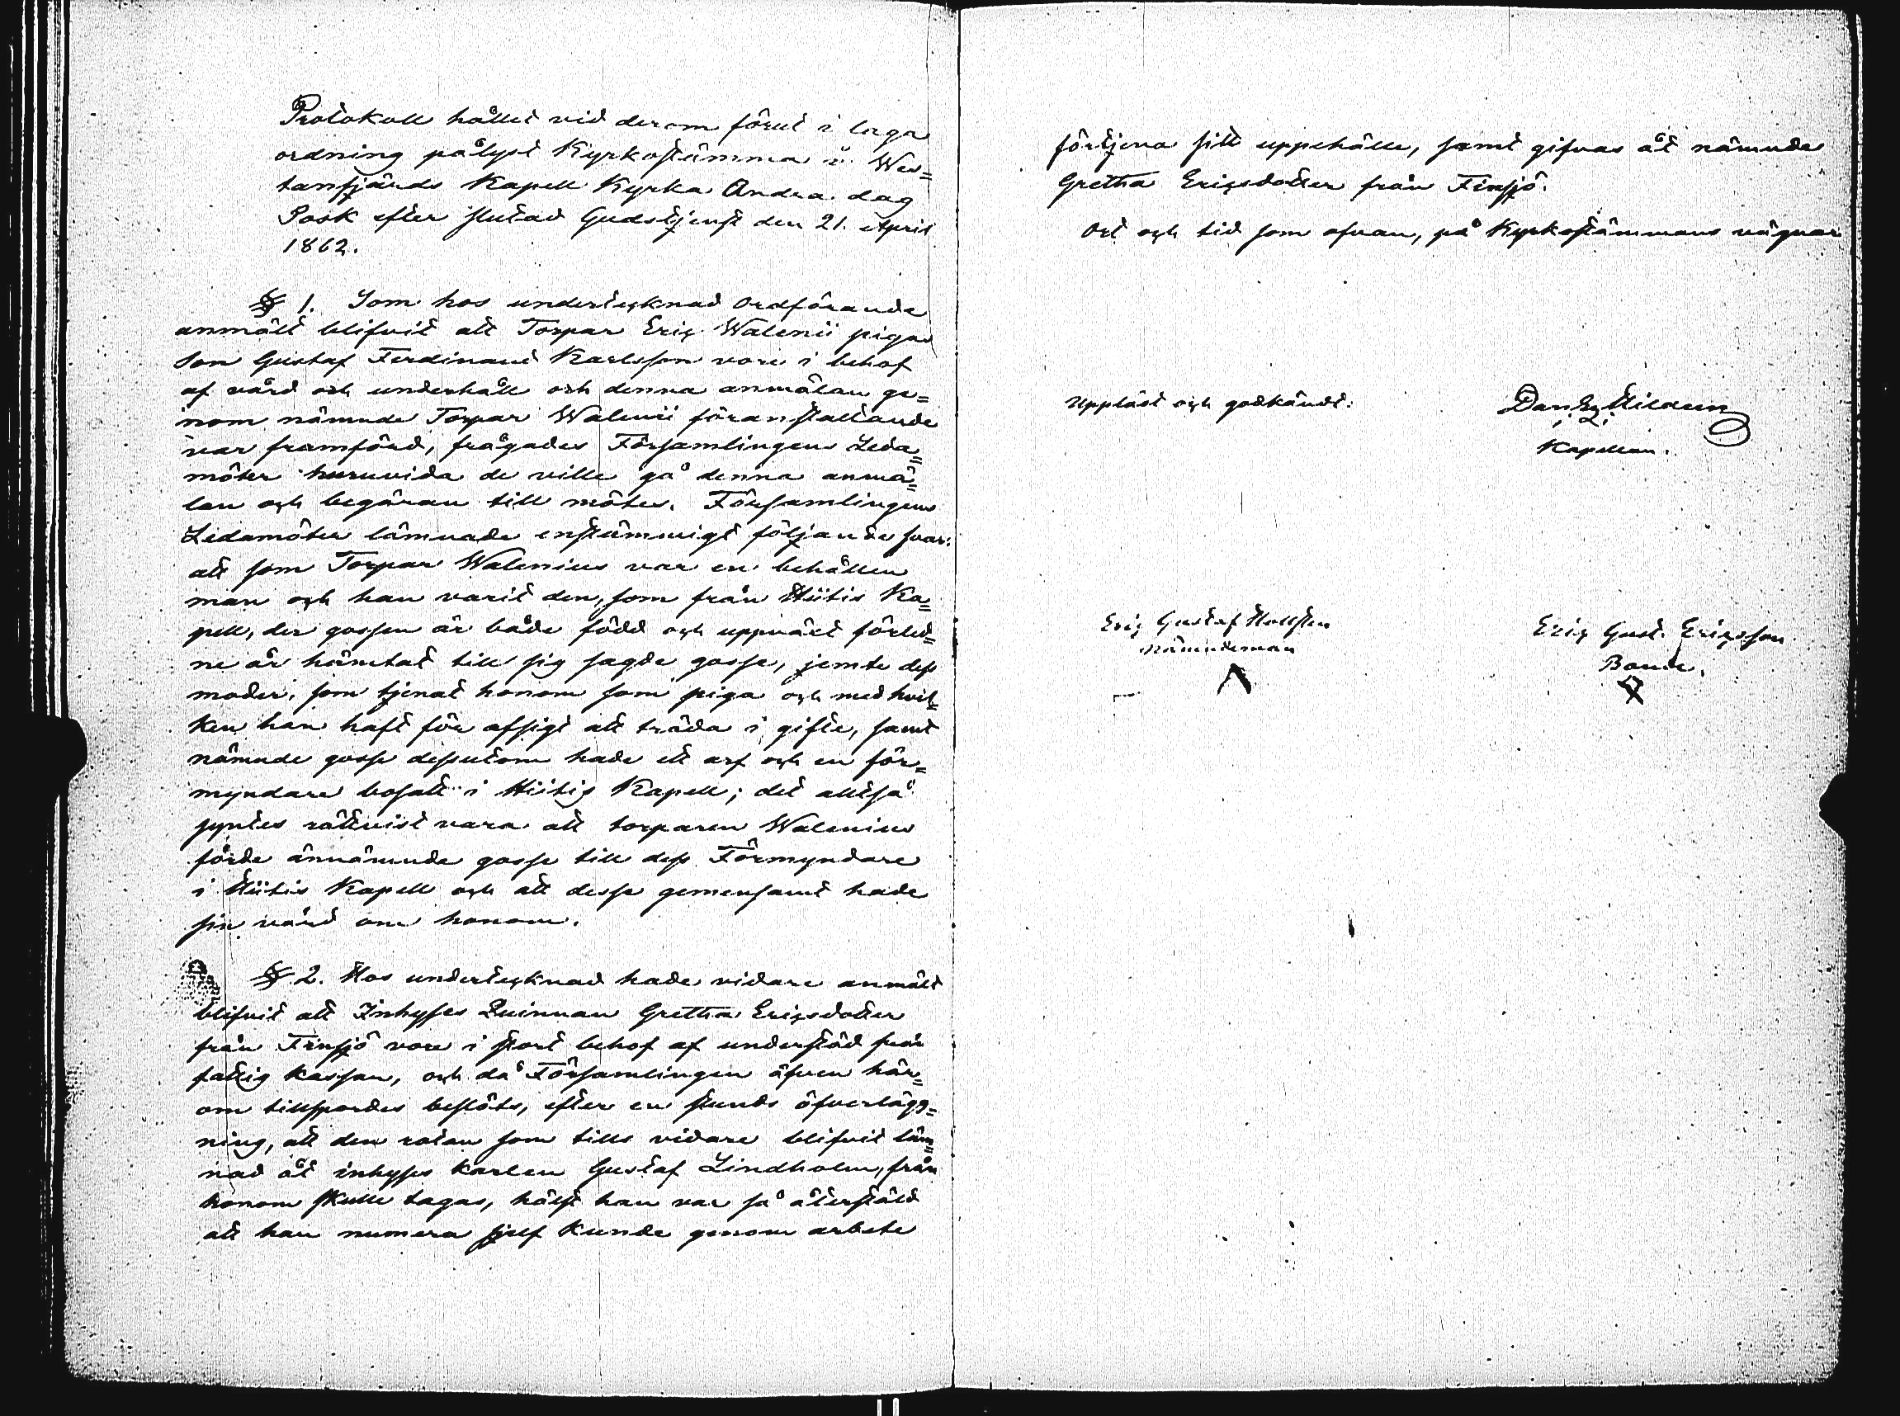 Protokoll hållet vid derom förut i laga
ordning pålyst Kyrkostämma i Wes=
tanfjärds Kapell Kyrka Andra dag
Pask efter slutad Gudstjenst den 21. April
1862.
§ 1. Som hos undertecknad Ordförande
anmält blifvit att Torpar Eric Walenii pigas
son Gustaf Ferdinand Karlsson vore i behof
af vård och underhåll och denna anmälan ge=
nom nämnde Torpar Walenii föranstaltande
var framförd, frågades Församlingens Leda=
möter huruvida de ville gå denna anmä=
lan och begäran till mötes. Församlingens
Ledamöter lämnade enstämmigt följande svar:
att som Torpar Walenius var en behållen
man och han varit den, som från Hitis Ka=
pell, der gossen är både född och uppväxt förled=
ne år hämtat till sig sagde gosse, jemte dess
moder, som tjenat honom som piga och med hvil=
ken han haft för afsigt att träda i gifte, samt
nämnde gosse dessutom hade ett arf och en för=
myndare bosatt i Hitis Kapell; det alltså
syntes rättvist vara att torparen Walenius
förde ännämnde gosse till dess Förmyndare
i Hitis Kapell och att desse gemensamt hade
sin vård om honom.
§ 2. Hos undertecknad hade vidare anmält
blifvit att Inhyses Quinnan Gretha Ericsdotter
från Finsjö vore i stort behof af understöd från
fattig kassan, och då Församlingen äfven här=
om tillspordes beslöts, efter en stunds öfverlägg=
ning, att den rotan som tills vidare blifvit läm=
nad åt inhyses karlen Gustaf Lindholm, från
honom skulle tagas, hälst han var så återstäld
att han numera sjelf kunde genom arbete
förtjena sitt uppehälle, samt gifvas åt nämnde
Gretha Ericsdotter från Finsjö.
Ort och tid som ofvan, på Kyrkostämmans vägnar
Uppläst och godkändt:
Kapellan.
Eric Gustaf Hollsten
Nämndeman
Eric Gust. Ericsson
Bonde.